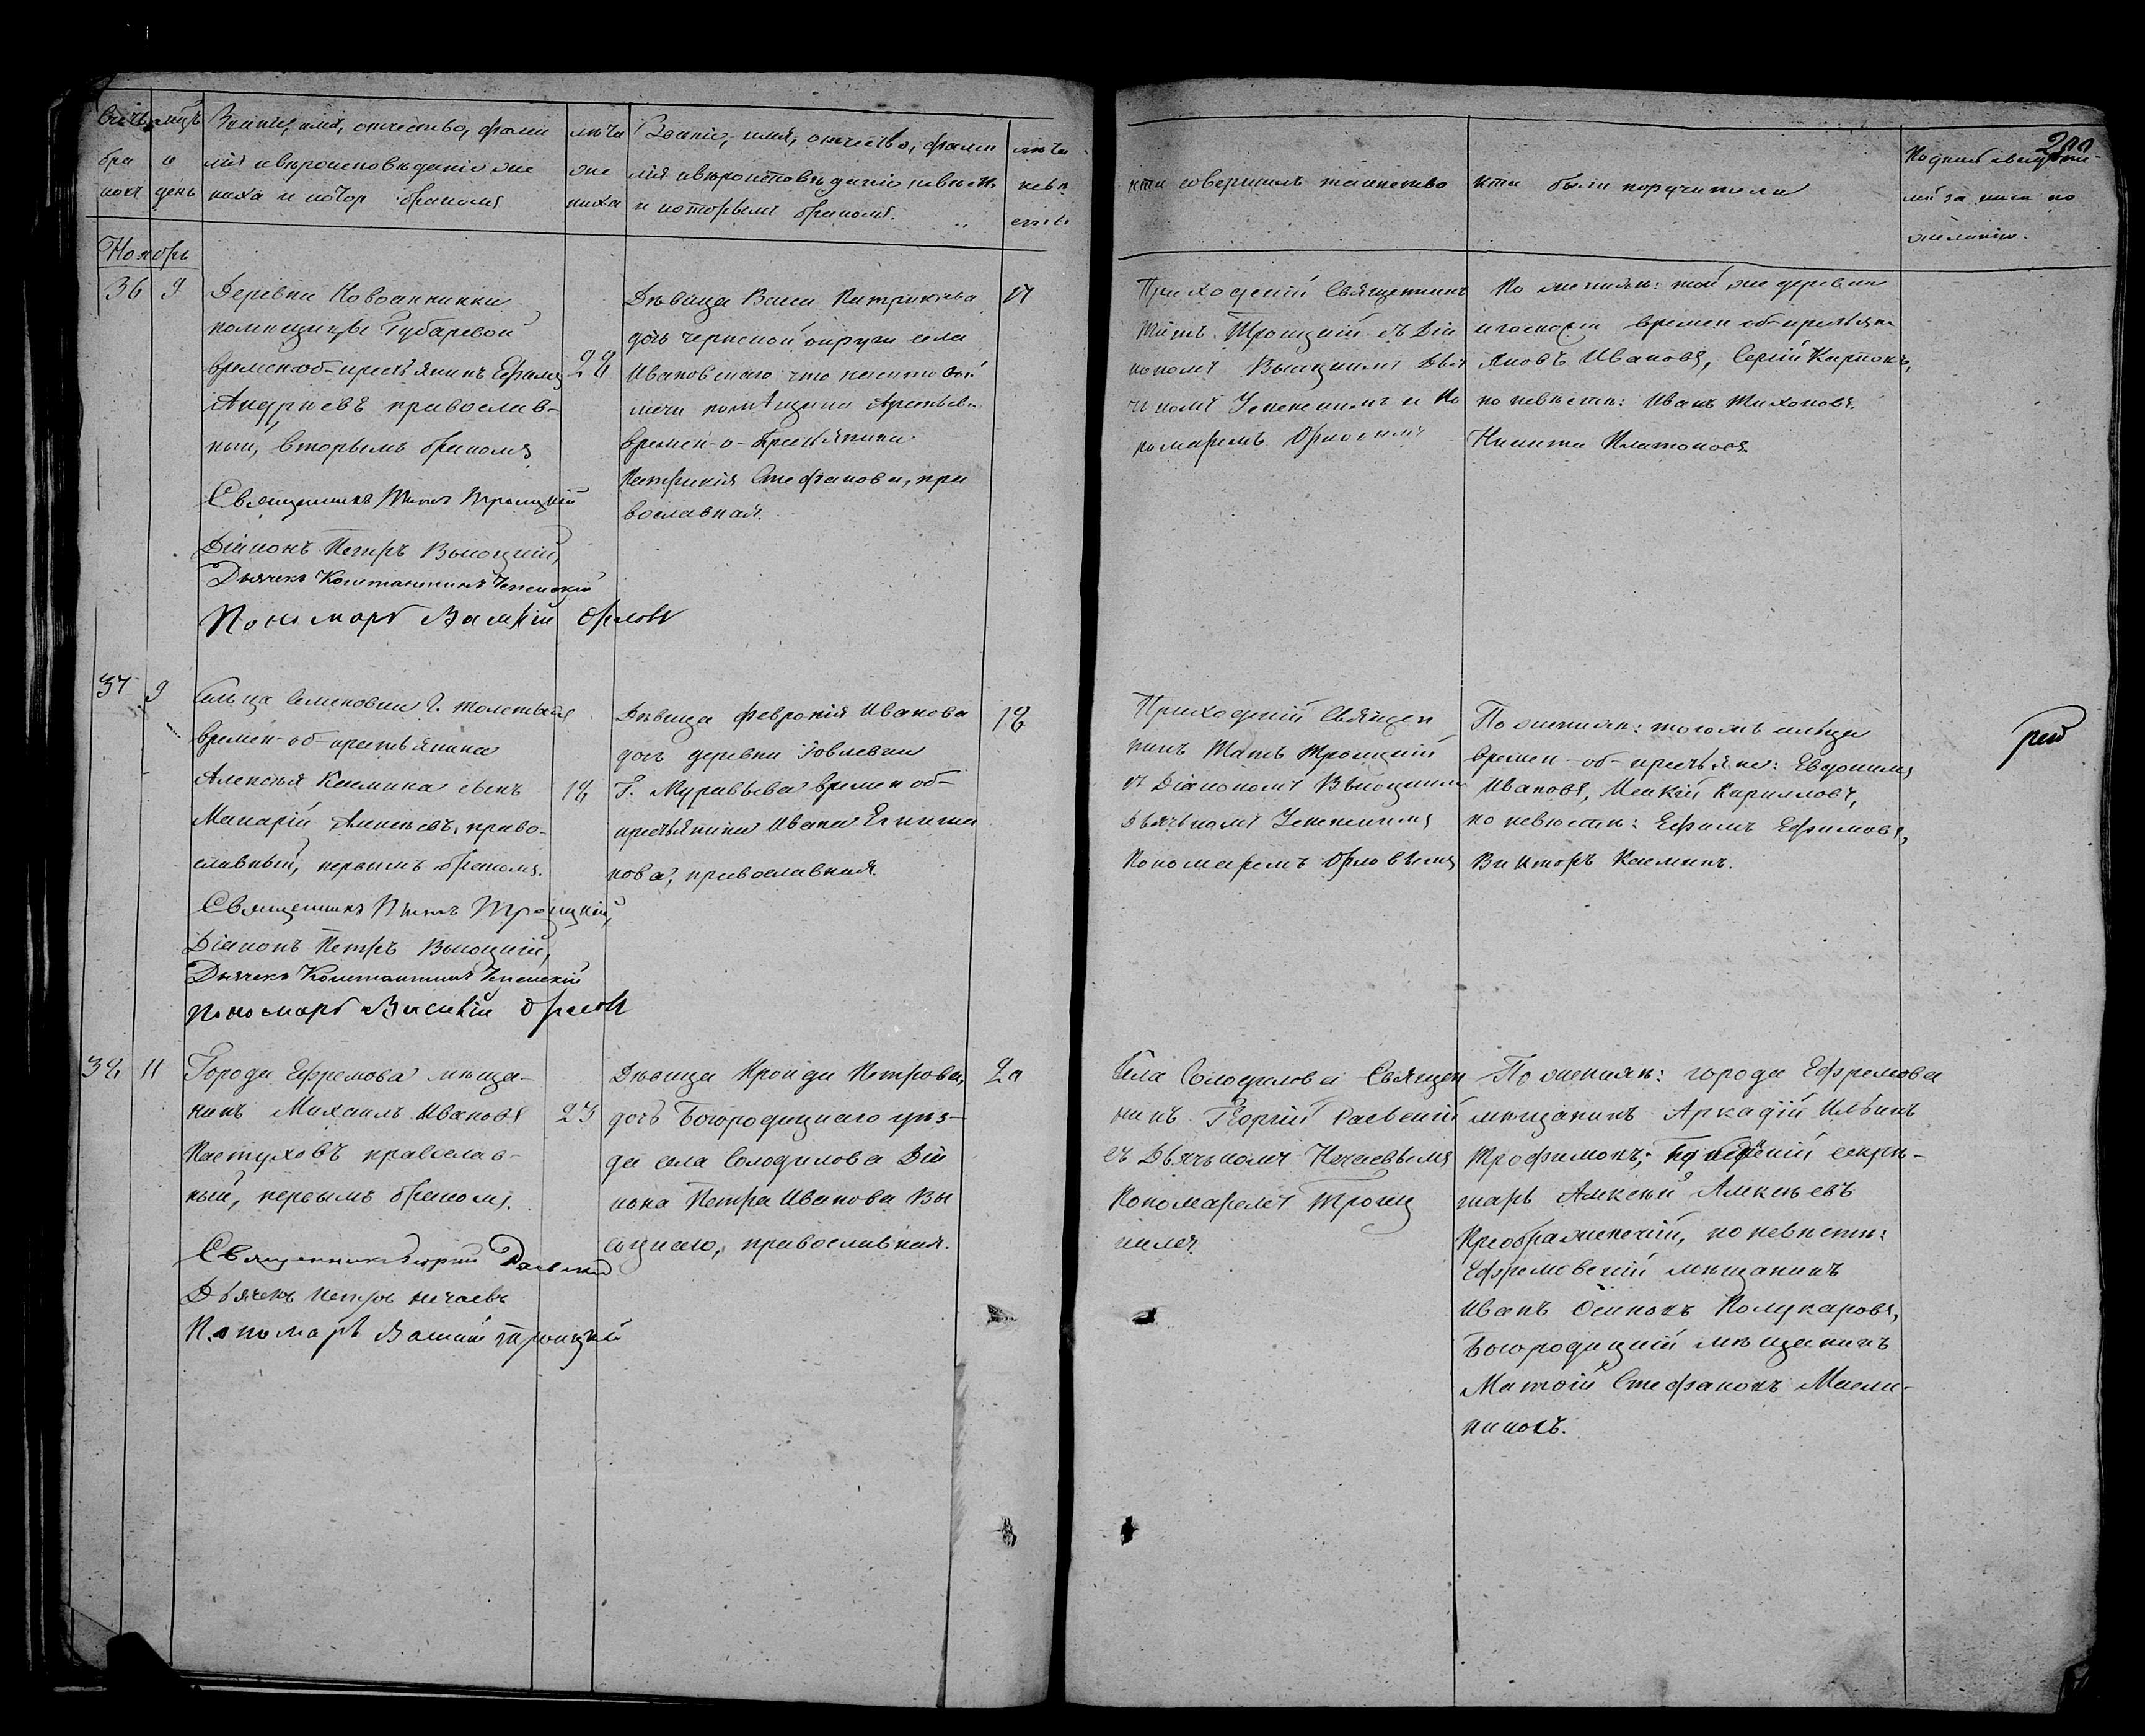 Счетъ
бра
ковъ
мцъ
и
день
Званіе, имя, отчество, фами
лія и вѣроисповѣданіе же
ниха и котор. бракомъ
лѣта
же
ниха
Званіе, имя, отчество, фами
лія и вѣроисповѣданіе невѣсты
и которымъ бракомъ.
лѣта
невѣ
сты
Ноябрь
36
9
Деревни Новоаннинки
помѣщицы Губаревой
времен-об-крестьянинъ Ефимъ
Андреевъ православ-
ный, вторымъ бракомъ
Священникъ Титъ Троицкій
Діаконъ Петръ Высоцкій,
Дьячекъ Константинъ Успенскій
Пономарь Василій Орловъ
28
Дѣвица Васса Патрикіева
дочь чернской округи села
Ивановскаго что на
мечи помѣщика Арсеньева
времен-о-крестьянина
Патрикія Стефанова, пра
вославная.
17
37
9
Сельца Семеновки Г. Толстыхъ
времен-об-крестьянина
Алексѣя Космина сынъ
Макарій Алексѣевъ, право-
славный, первымъ бракомъ.
Священникъ Титъ Троицкій,
Діаконъ Петръ Высоцкій,
Дьячекъ Константинъ Успенскій
Пономарь Василій Орловъ
18
Дѣвица Февронія Иванова
дочь деревни Іовлевки
Г. Муравьева времен об-
крестьянина Ивана
нова, православная.
18
38
11
Города Ефремова мѣща-
нинъ Михаилъ Ивановъ
Пастуховъ православ-
ный, первымъ бракомъ.
Священникъ Георгій Раевскій
Дьячекъ Петръ Нечаевъ
Пономарь Василій Троицкій
23
Дѣвица Ираида Петрова,
дочь Богородицкаго уѣз-
да села Солодилова Діа
кона Петра Иванова Вы
соцкаго, православная.
20
кто совершалъ таинство
кто были поручители
200
Подпись свидѣте-
лей за писи по
желанію.
Приходскій Священникъ
Титъ Троицкій съ Діа
кономъ Высоцкимъ Дья
чкомъ Успенскимъ и По
номаремъ Орловымъ
По женихѣ: той же деревни
и госпожи времен-об-крестьяне
Яковъ Ивановъ, Сергій Карповъ,
по невѣстѣ: Иванъ Тихоновъ.
Никита Платоновъ
Приходскій Священ
никъ Титъ Троицкій
съ Діакономъ Высоцкимъ
Дьячькомъ Успенскимъ
Пономаремъ Орловымъ
По женихѣ: тогожъ сельца
времен-об-крестьяне: Евдокимъ
Ивановъ, Кирилловъ,
по невѣстѣ: Ефимъ Ефимовъ,
Викторъ Косминъ.
Села Солодилова Священ
никъ Георгій Раевскій
съ Дьячькомъ Нечаевымъ
Пономаремъ Троиц
кимъ.
По женихѣ: города Ефремова
мѣщанинъ Аркадій Ильинъ
Трофимовъ, секре-
тарь Алексѣй Алексѣевъ
Преображенскій, по невѣстѣ:
Ефремовскій мѣщанинъ
Иванъ Осиповъ Поликаровъ,
Богородицкій мѣщанинъ
Матвѣй Стефановъ Масле-
никовъ.